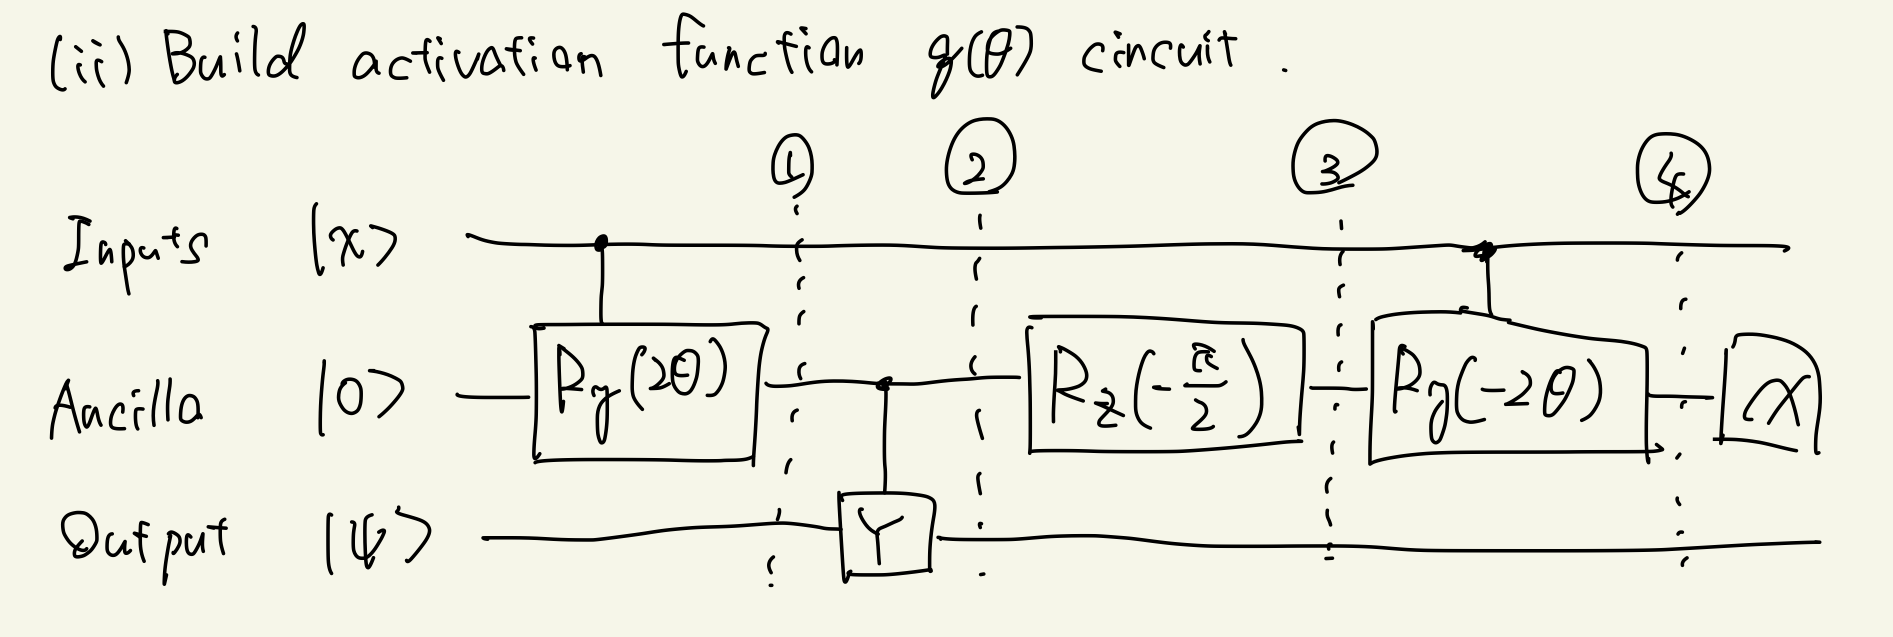 (ii) Build activation function g(θ) circuit.
① ② ③ ④
Inputs |x>
Ancilla |0> Ry(2θ) Rz(-π/2) Ry(-2θ)
Output |ψ> Y